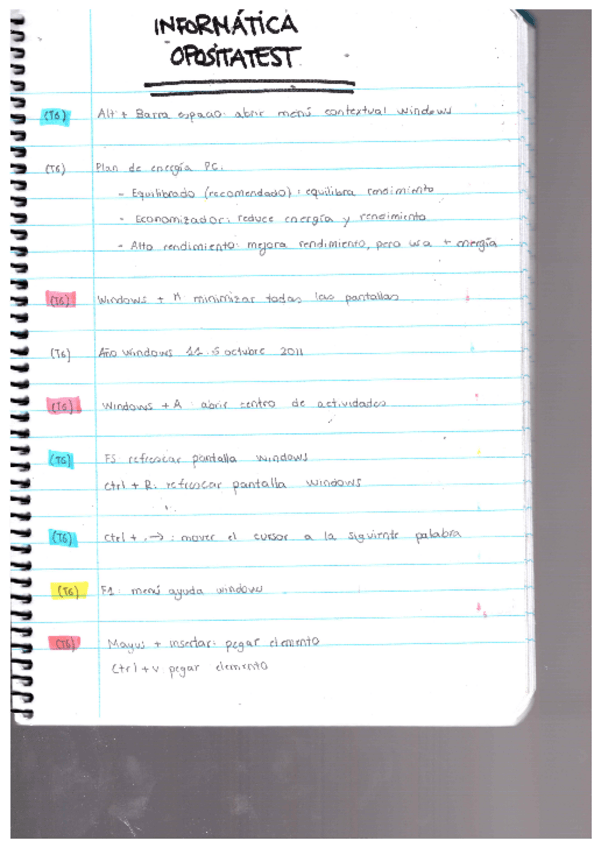 INFORMÁTICA
OPOSITATEST
(T6) Alt + Barra espacio: abrir menú contextual windows
(T6) Plan de energía PC.
- Equilibrado (recomendado): equilibra rendimiento
- Economizador: reduce energía y rendimiento
- Alto rendimiento: mejora rendimiento, pero usa + energía
(T6) Windows + M minimizar todas las pantallas
(T6) Año windows 11. 5 octubre 2011
(T6) Windows + A: abrir centro de actividades
(T6) F5 refrescar pantalla windows
ctrl + R: refrescar pantalla windows
(T6) ctrl + → : mover el cursor a la siguiente palabra
(T6) F1: menú ayuda windows
(T6) Mayus + insertar: pegar elemento
Ctrl + v pegar elemento